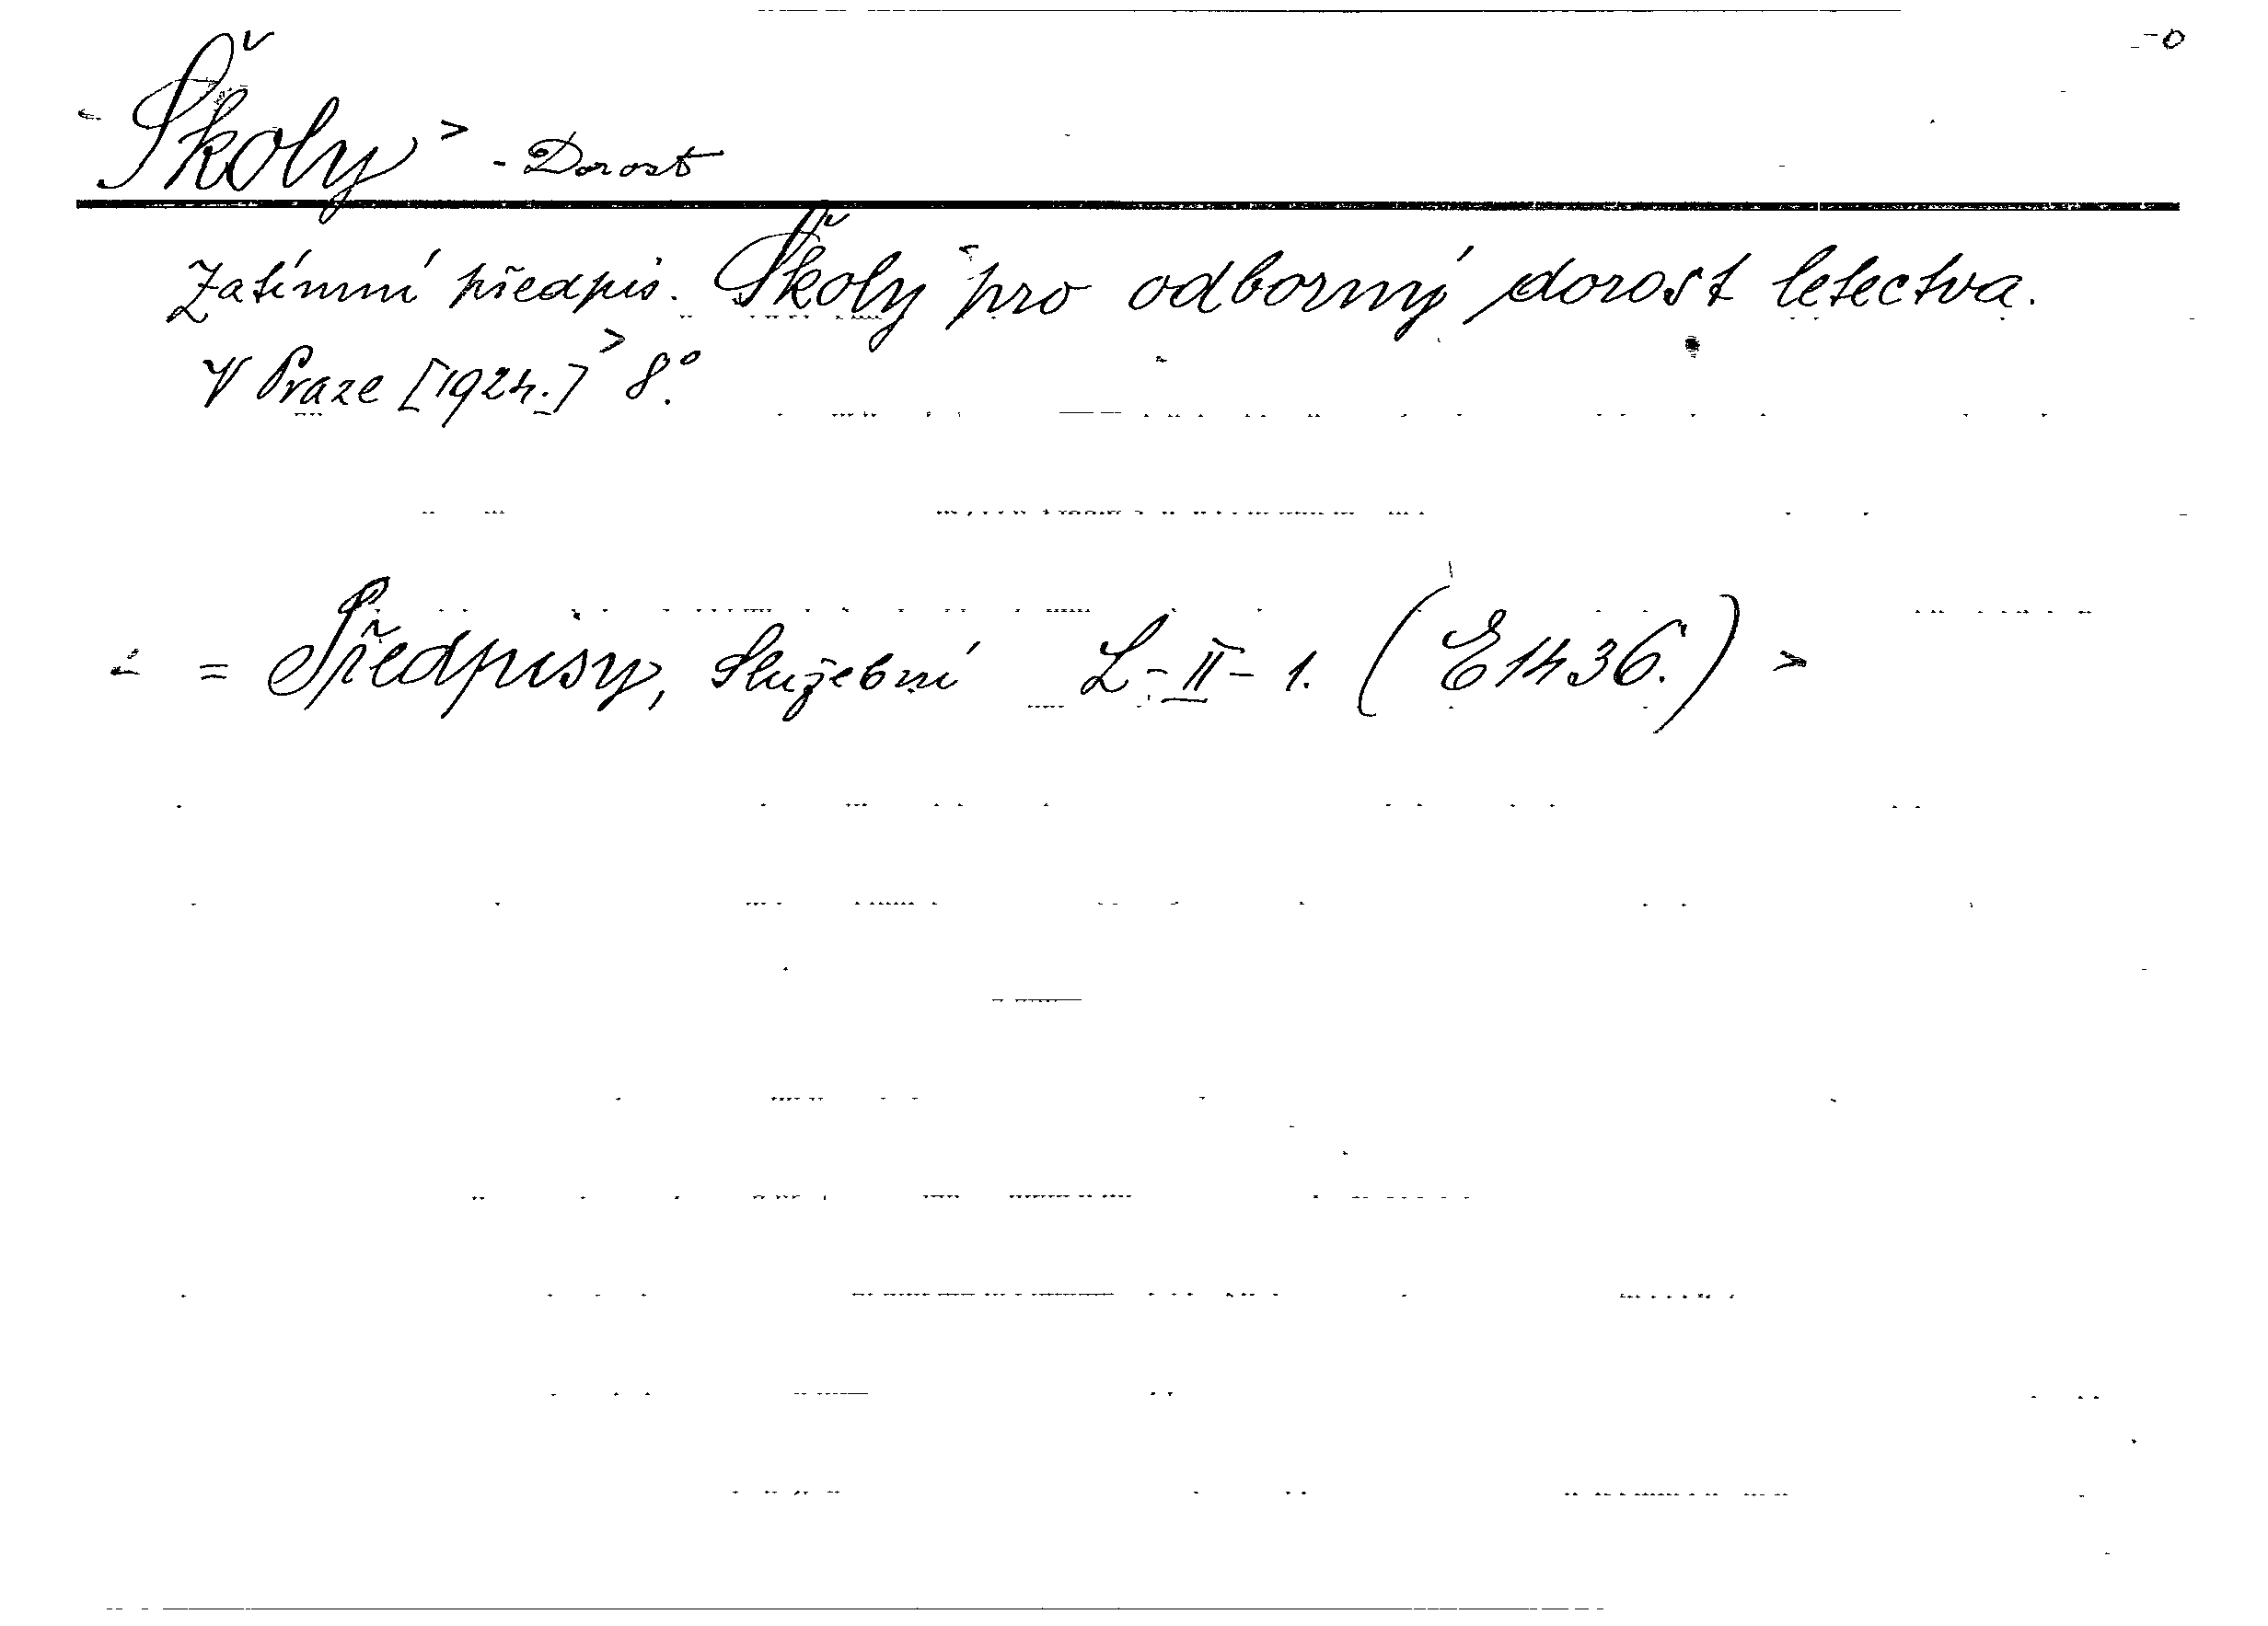 Školy > - Dorost
Zatímní předpis. Školy pro odborný dorost letectva.
V Praze [1924.] > 8°.
= Předpisy, Služební L-II-1. (E1436.) >